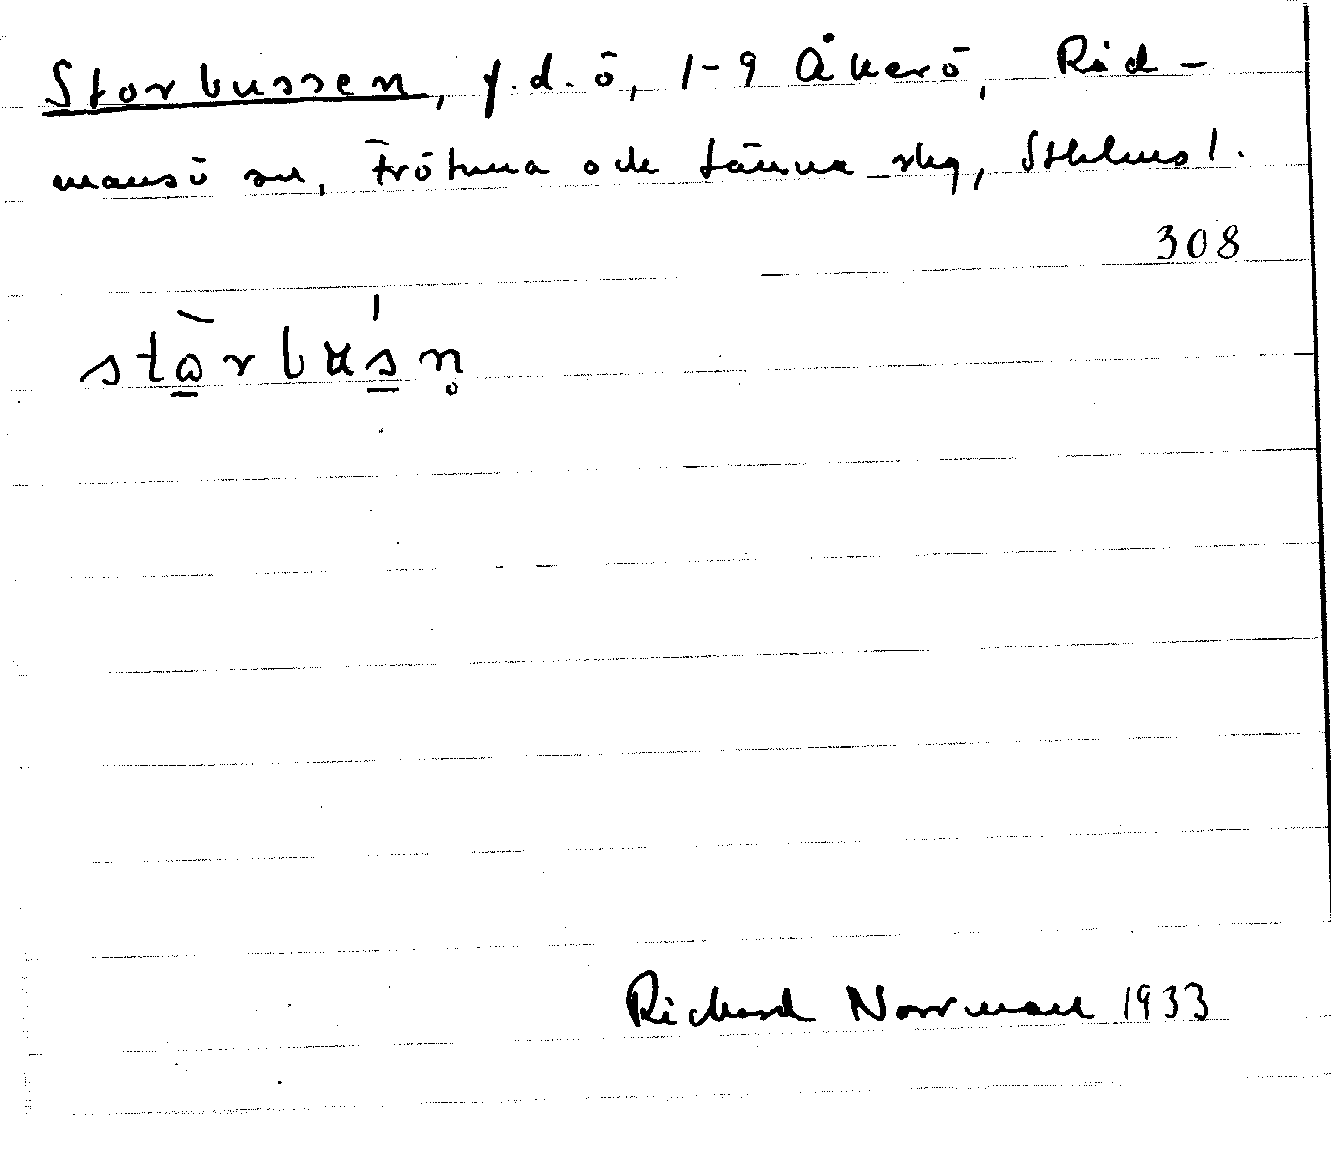 Storbussen, f.d. ö, 1-9 Åkerö, Råd-
mansö sn, Frötuna ock Länna skg, Sthlms l.
308
stὰrbus̲n̥
Richard Norrman 1933